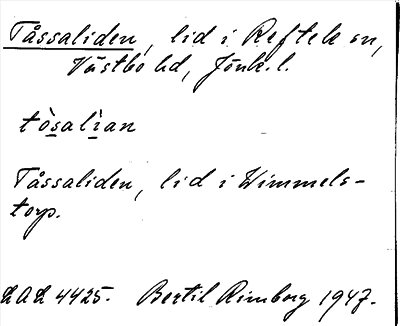 Tåssaliden, lid i Reftele sn,
Västbo hd, Jönk. l.
tòsalìan
Tåssaliden, lid i Himmels-
torp.
LAL 4425. Bertil Rimborg 1947.